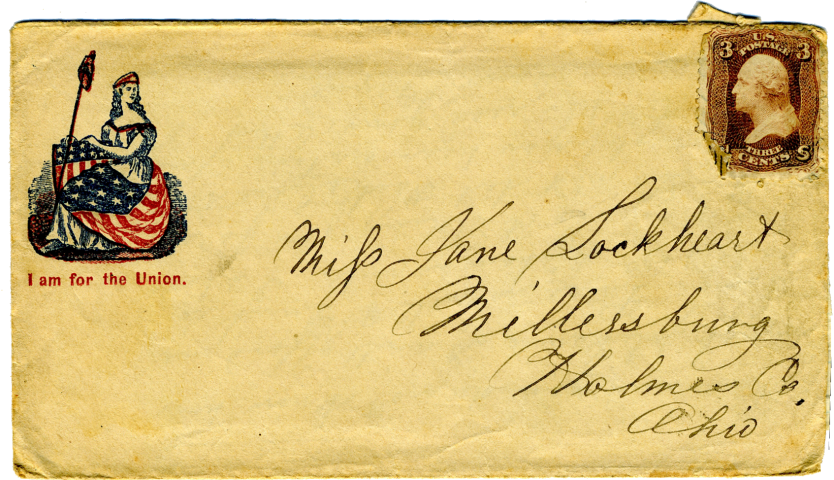 3 U.S. 3
POSTAGE
THREE
CENTS
U S
I am for the Union.
Miss Jane Lockheart
Millersburg
Holmes Co.
Ohio